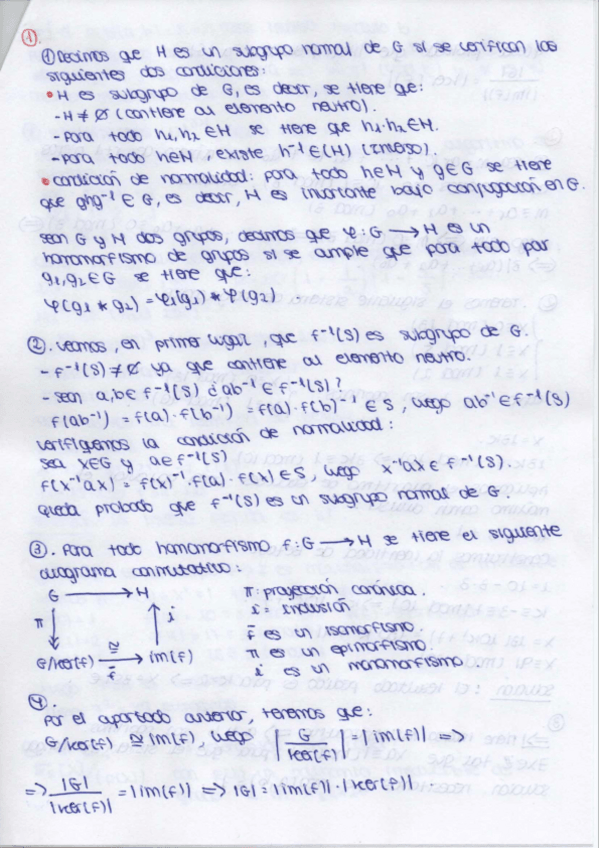 ①
① Decimos que H es un subgrupo normal de G si se verifican las
siguientes dos condiciones:
• H es subgrupo de G, es decir, se tiene que:
- H ≠ ∅ (contiene al elemento neutro).
- para todo h₁, h₂ ∈ H se tiene que h₁·h₂ ∈ H.
- para todo h ∈ H, existe h⁻¹ ∈ (H) (inverso).
• condición de normalidad: para todo h ∈ H y g ∈ G se tiene
que ghg⁻¹ ∈ G, es decir, H es invariante bajo conjugación en G.
sean G y H dos grupos, decimos que φ: G → H es un
homomorfismo de grupos si se cumple que para todo par
g₁, g₂ ∈ G se tiene que:
φ(g₁ * g₂) = φ(g₁) * φ(g₂)
②. veamos, en primer lugar, que f⁻¹(S) es subgrupo de G.
- f⁻¹(S) ≠ ∅ ya que contiene al elemento neutro.
- sean a, b ∈ f⁻¹(S) ¿ab⁻¹ ∈ f⁻¹(S)?
f(ab⁻¹) = f(a)·f(b⁻¹) = f(a)·f(b)⁻¹ ∈ S, luego ab⁻¹ ∈ f⁻¹(S)
verifiquemos la condición de normalidad:
sea x ∈ G y a ∈ f⁻¹(S)
f(x⁻¹ax) = f(x)⁻¹·f(a)·f(x) ∈ S, luego x⁻¹ax ∈ f⁻¹(S)
queda probado que f⁻¹(S) es un subgrupo normal de G.
③. Para todo homomorfismo f: G → H se tiene el siguiente
diagrama conmutativo:
G → H π: proyección canónica.
π ↓ ↑ i i: inclusión
f̄ es un isomorfismo.
G/ker(f) ≅ → f̄ im(f) π es un epimorfismo.
i es un monomorfismo.
④.
Por el apartado anterior, tenemos que:
G/ker(f) ≅ im(f), luego |G/ker(f)| = |im(f)| =>
=> |G|/|ker(f)| = |im(f)| => |G| = |im(f)|·|ker(f)|.